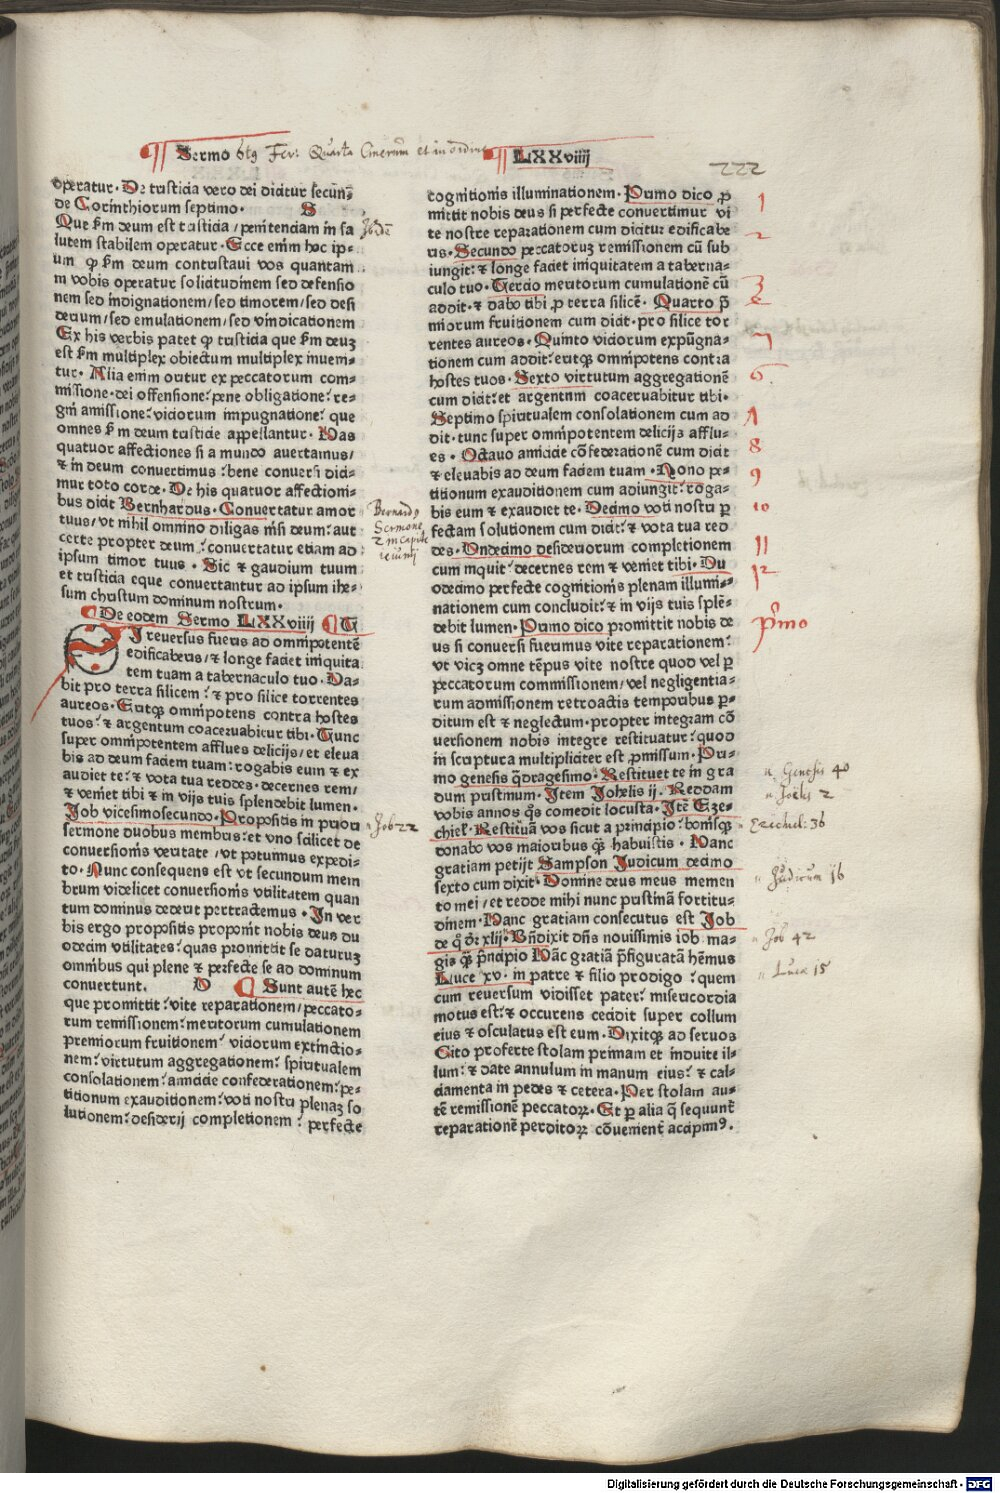 Sermo 6tus Fer: Quarta Cinerum et in ordine LXXviiij
222
operatur. De tristicia vero dei dicitur secūn-
de Corinthiorum septimo. S
Que km deum est tristicia/penitenciam in sa
lutem stabilem operatur. Ecce enim hoc ip-
um ꝙ km deum contristaui vos quantam
in vobis operatur solicitudinem sed defensio
nem sed indignationem/sed timorem/sed desi
derium/sed emulationem/sed vindicationem
Ex his verbis patet ꝙ tristicia que km deuz
est km multiplex obiectum multiplex inueni-
tur. Alia enim oritur ex peccatorum com-
missione. dei offensione: pene obligatione: re-
gni amissione: viciorum impugnatione: que
omnes km deum tristicie appellantur. Has
quatuor affectiones si a mundo auertamus/
⁊ in deum conuertimus: bene conuersi dici-
mur toto corde. De his quatuor affectioni-
bus dicit Bernhardus. Conuertatur amor
tuus/vt nihil omnino diligas nisi deum: aut
certe propter deum: conuertatur etiam ad
ipsum timor tuus. Sic ⁊ gaudium tuum
et tristicia eque conuertantur ad ipsum ihe-
sum christum dominum nostrum.
De eodem Sermo LXXviiij T
SI reuersus fueris ad omnipotentē
edificaberis/⁊ longe facies iniquita
tem tuam a tabernaculo tuo. Da-
bit pro terra silicem: ⁊ pro silice torrentes
aureos. Eritqꝫ omnipotens contra hostes
tuos: ⁊ argentum coaceruabitur tibi. Tunc
super omnipotentem afflues delicijs/et eleua
bis ad deum faciem tuam: rogabis eum ⁊ ex
audiet te: ⁊ vota tua reddes. decernes rem/
⁊ veniet tibi ⁊ in vijs tuis splendebit lumen.
Job vicesimosecundo. Propositis in priori
sermone duobus membris: et vno scilicet de
conuersionis veritate/vt potuimus expedi-
to. Nunc consequens est vt secundum mem
brum videlicet conuersionis vtilitatem quan
tum dominus dederit pertractemus. In ver
bis ergo propositis proponit nobis deus du
odecim vtilitates: quas promittit se daturuz
omnibus qui plene ⁊ perfecte se ad dominum
conuertunt. D Sunt autē hec
que promittit: vite reparationem/peccato-
rum remissionem: meritorum cumulationem
premiorum fruitionem: viciorum extinctio-
nem: virtutum aggregationem: spiritualem
consolationem: amicicie confederationem: pe-
titionum exauditionem: voti nostri plenaz so
lutionem: desiderij completionem: perfecte
Bernardꝰ
Sermone
2 in capite
ieiunij
Job 22
cognitionis illuminationem. Primo dico ꝓ
mittit nobis deus si perfecte conuertimur vi
te nostre reparationem cum dicitur edificabe
ris. Secundo peccatoruz remissionem cū sub
iungit: ⁊ longe faciet iniquitatem a taberna-
culo tuo. Tercio meritorum cumulationē cū
addit. ⁊ dabo tibi ꝓ terra silicē. Quarto p̄
miorum fruitionem cum dicit. pro silice tor
rentes aureos. Quinto viciorum expūgna-
tionem cum addit: eritqꝫ omnipotens contra
hostes tuos. Sexto virtutum aggregationē
cum dicit: et argentum coaceruabitur tibi.
Septimo spiritualem consolationem cum ad
dit. tunc super omnipotentem delicijs afflu-
es. Octauo amicicie cōfederationē cum dicit
⁊ eleuabis ad deum faciem tuam. Nono pe-
titionum exauditionem cum adiungit: roga-
bis eum ⁊ exaudiet te. Decimo voti nostri ꝑ
fectam solutionem cum dicit: ⁊ vota tua red
des. Undecimo desideriorum completionem
cum inquit: decernes rem ⁊ veniet tibi. Du
odecimo perfecte cognitionis plenam illumi-
nationem cum concludit: ⁊ in vijs tuis splē-
debit lumen. Primo dico promittit nobis de
us si conuersi fuerimus vite reparationem:
vt vicꝫ omne tēpus vite nostre quod vel ꝑ
peccatorum commissionem/vel negligentia-
rum admissionem retroactis temporibus ꝑ-
ditum est ⁊ neglectum. propter integram cō
uersionem nobis integre restituatur: quod
in scriptura multipliciter est ꝓmissum. Pri-
mo genesis q̄dragesimo. Restituet te in gra
dum pristinum. Item Johelis ij. Reddam
vobis annos q̄s comedit locusta. Itē Eze-
chiel. Restituā vos sicut a principio: bonisqꝫ
donabo vos maioribus qꝫ habuistis. Hanc
gratiam petijt Sampson Judicum decimo
sexto cum dixit. Domine deus meus memen
to mei/et redde mihi nunc pristinā fortitu-
dinem. Hanc gratiam consecutus est Job
de q̊ dr̄ xlij. Bn̄dixit dn̄s nouissimis iob ma-
gis qꝫ p̄ncipio Hāc gratiā p̄figuratā hēmus
Luce xv. in patre ⁊ filio prodigo: quem
cum reuersum vidisset pater: misericordia
motus est: ⁊ occurens cecidit super collum
eius ⁊ osculatus est eum. Dixitqꝫ ad seruos
Cito proferte stolam primam et induite il-
lum: ⁊ date annulum in manum eius: ⁊ cal-
ciamenta in pedes ⁊ cetera. Per stolam au-
tē remissionē peccatoꝝ. Et ꝑ alia q̄ sequunt̄
reparationē perditoꝝ cōuenient̄ accipimꝰ.
1
2
3
4
5
6
7
8
9
10
11
12
pr̄mo
Genesis 40
Joelis 2
Ezichiel: 36
Judicum 16
Job 42
Luca 15
Digitalisierung gefördert durch die Deutsche Forschungsgemeinschaft - DFG